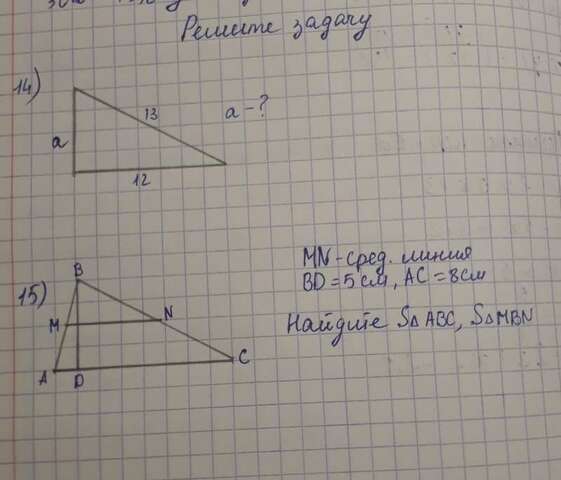 Решите задачу
14)
13
a - ?
a
12
MN - сред. линия
BD = 5 см, AC = 8 см
15)
B
M
N
Найдите S△ABC, S△MBN
C
A
D